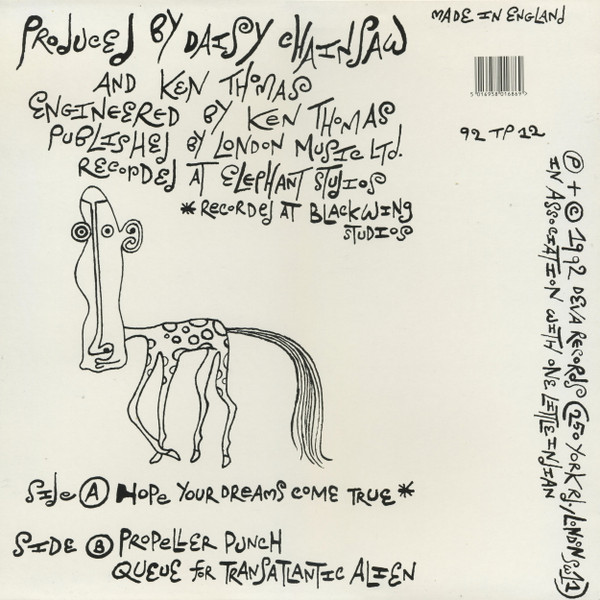 PRODUCED BY DAISY CHAINSAW
AND KEN THOMAS
ENGINEERED BY KEN THOMAS
PUBLISHED BY LONDON MUSIC LTD.
RECORDED AT ELEPHANT STUDIOS
*RECORDED AT BLACKWING
STUDIOS
MADE IN ENGLAND
5 016958 016869
92 TP 12
℗ + © 1992 DEVA RECORDS (250 YORK RD, LONDON SW11)
IN ASSOCIATION WITH ONE LITTLE INDIAN
SIDE A HOPE YOUR DREAMS COME TRUE*
SIDE B PROPELLER PUNCH
QUEUE FOR TRANSATLANTIC ALIEN